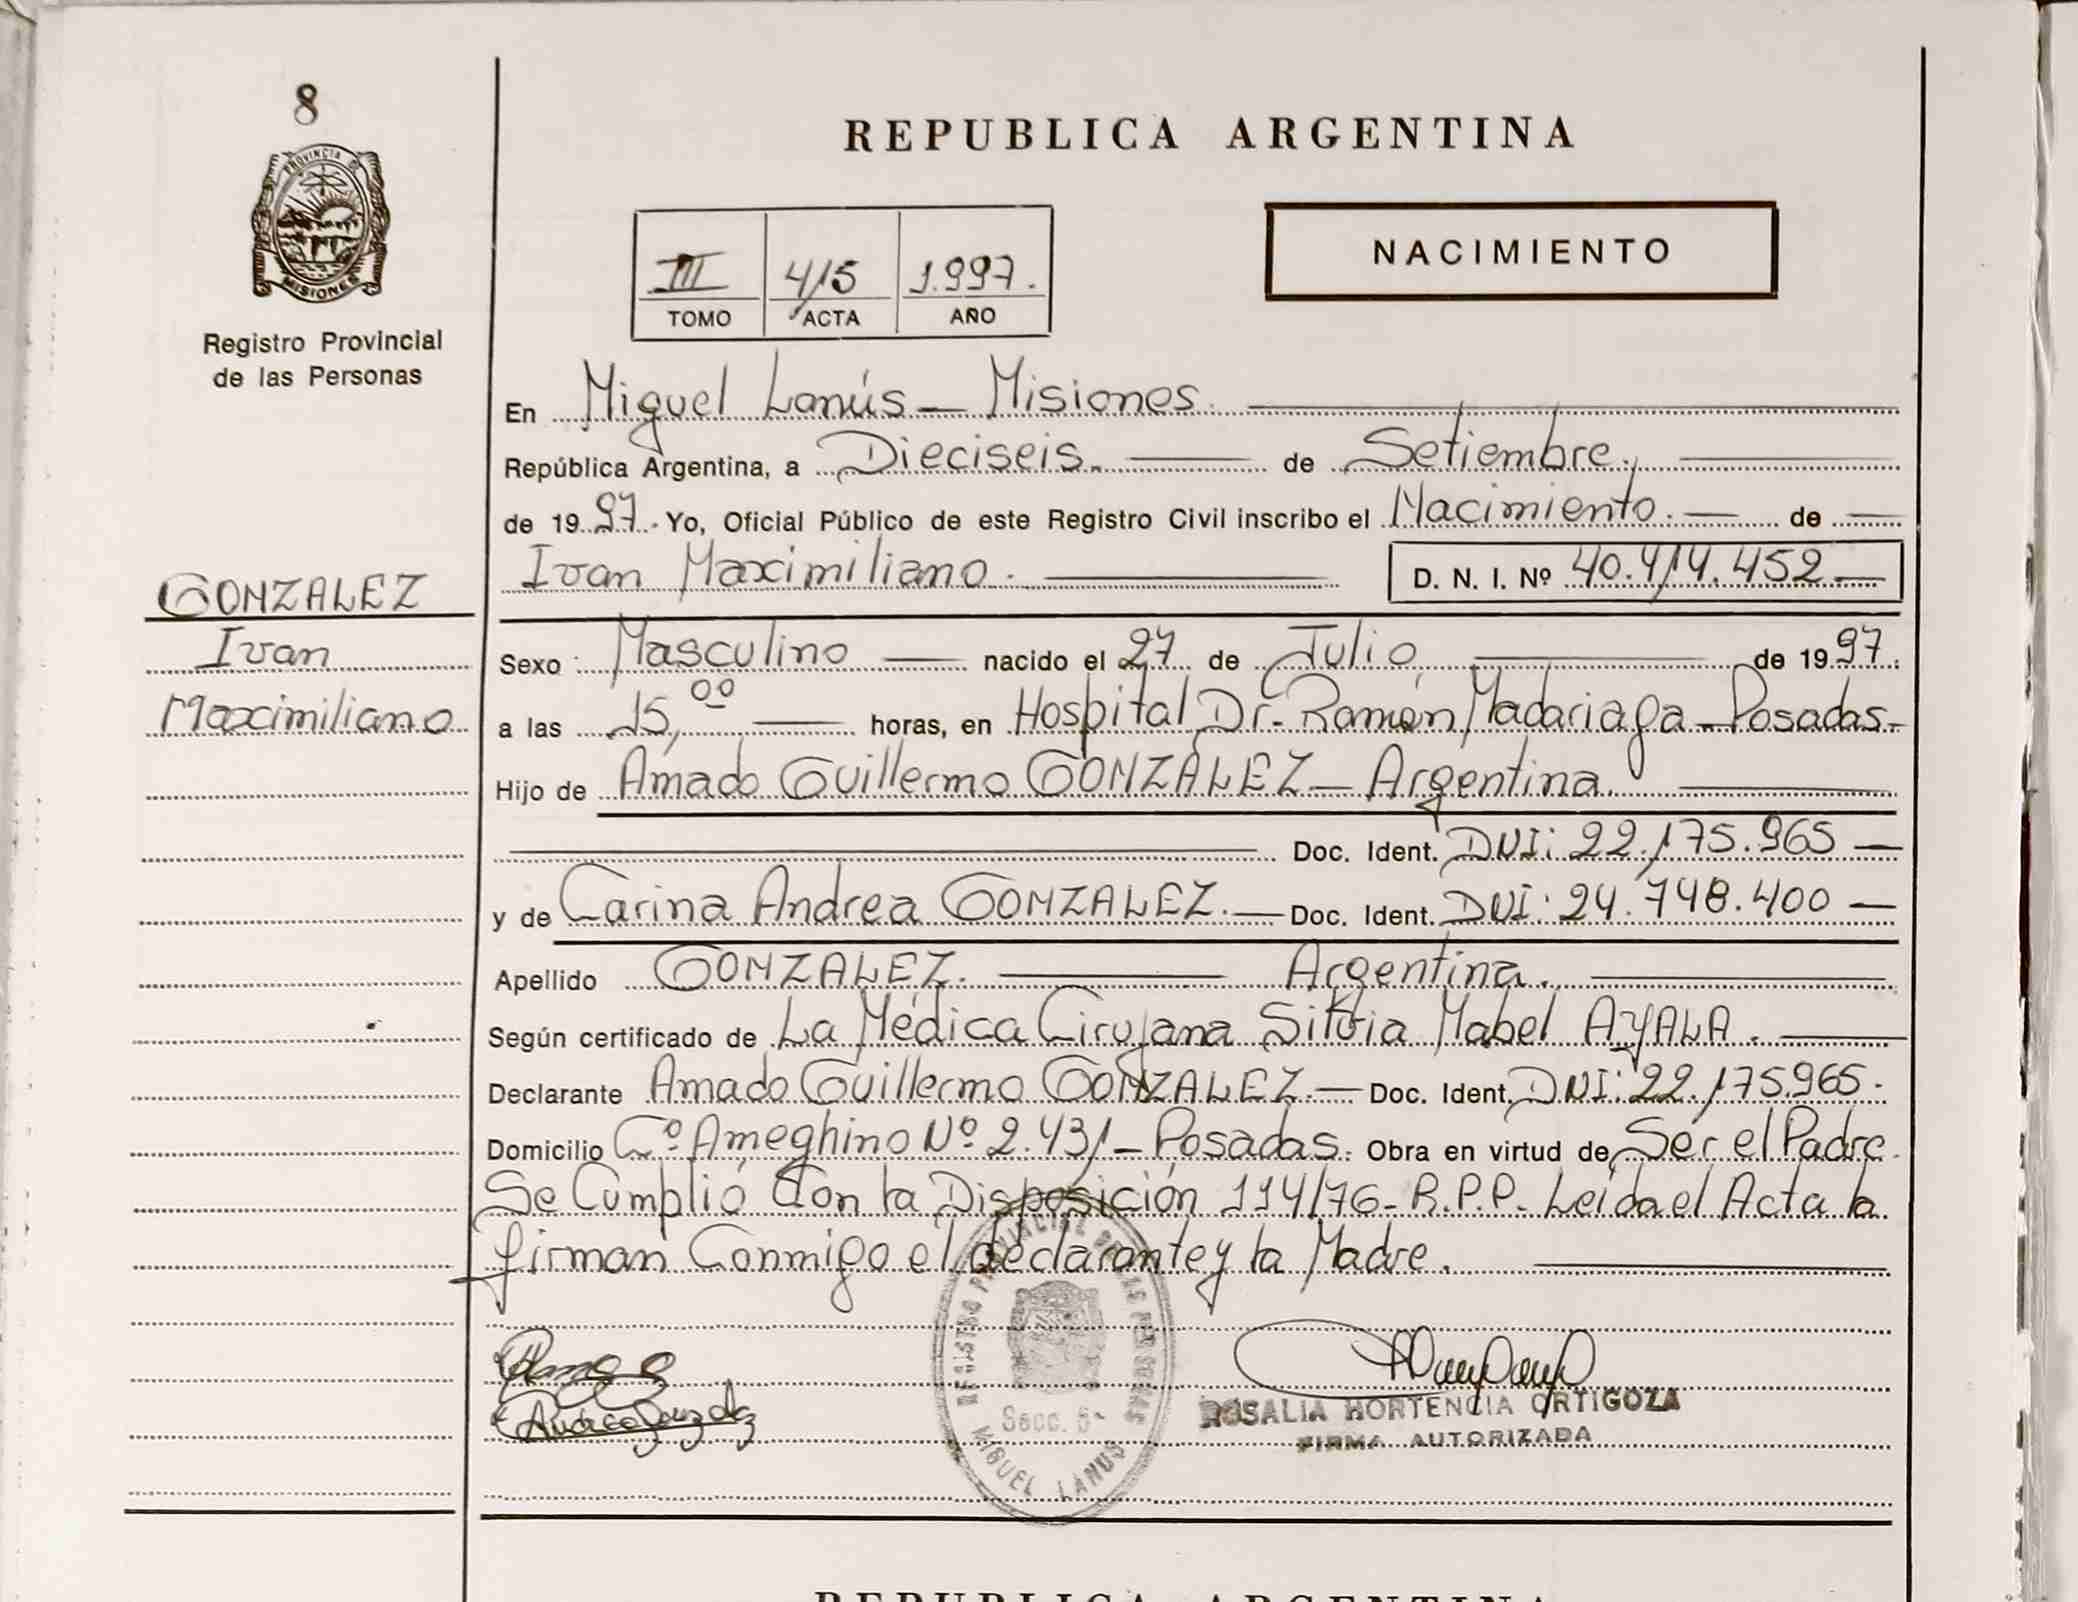 8
PROVINCIA DE
MISIONES
Registro Provincial
de las Personas
REPUBLICA ARGENTINA
III 415 1.997.
TOMO ACTA AÑO
NACIMIENTO
En Miguel Lanús - Misiones.
República Argentina, a Dieciseis. de Setiembre,
de 1997. Yo, Oficial Público de este Registro Civil inscribo el Nacimiento. de
Ivan Maximiliano. D. N. I. Nº 40.414.452
GONZALEZ
Ivan
Maximiliano
Sexo Masculino nacido el 27 de Julio de 1997.
a las 15,00 horas, en Hospital Dr. Ramón Madariaga - Posadas-
Hijo de Amado Guillermo GONZALEZ - Argentina.
Doc. Ident. DNI: 22.175.965
y de Carina Andrea GONZALEZ. Doc. Ident. DNI: 24.748.400
Apellido GONZALEZ. Argentina.
Según certificado de La Médica Cirujana Silvia Mabel AYALA.
Declarante Amado Guillermo GONZALEZ. Doc. Ident. DNI: 22.175.965.
Domicilio Cº Ameghino Nº 2.431 - Posadas. Obra en virtud de Ser el Padre.
Se Cumplió Con la Disposición 114/76- R.P.P. Leída el Acta la
firman Conmigo el declarante y la Madre.
REGISTRO PROVINCIAL DE LAS PERSONAS
Secc. 5
MIGUEL LANUS
ROSALIA HORTENCIA ORTIGOZA
FIRMA AUTORIZADA
REPUBLICA ARGENTINA